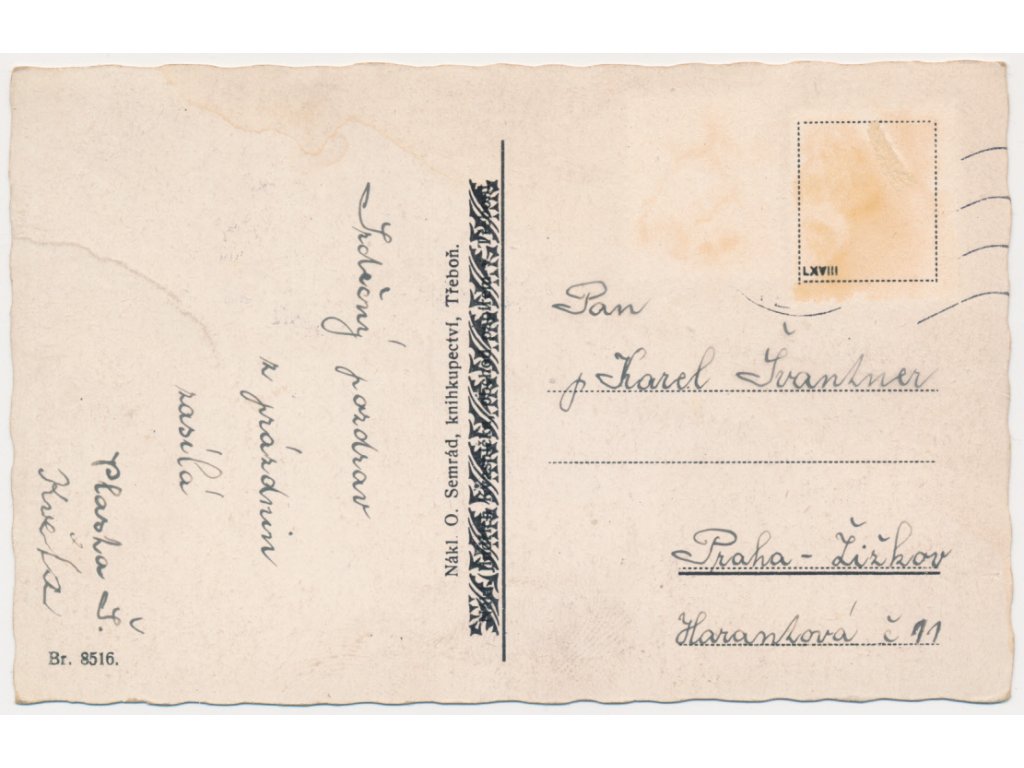 Srdečný pozdrav
z prázdnin
zasílá
Květa
Br. 8516.
Nákl. O. Semrád, knihkupectví, Třeboň.
LXVIII
Pan
p Karel Švantner
Praha - Žižkov
Harantová č 11